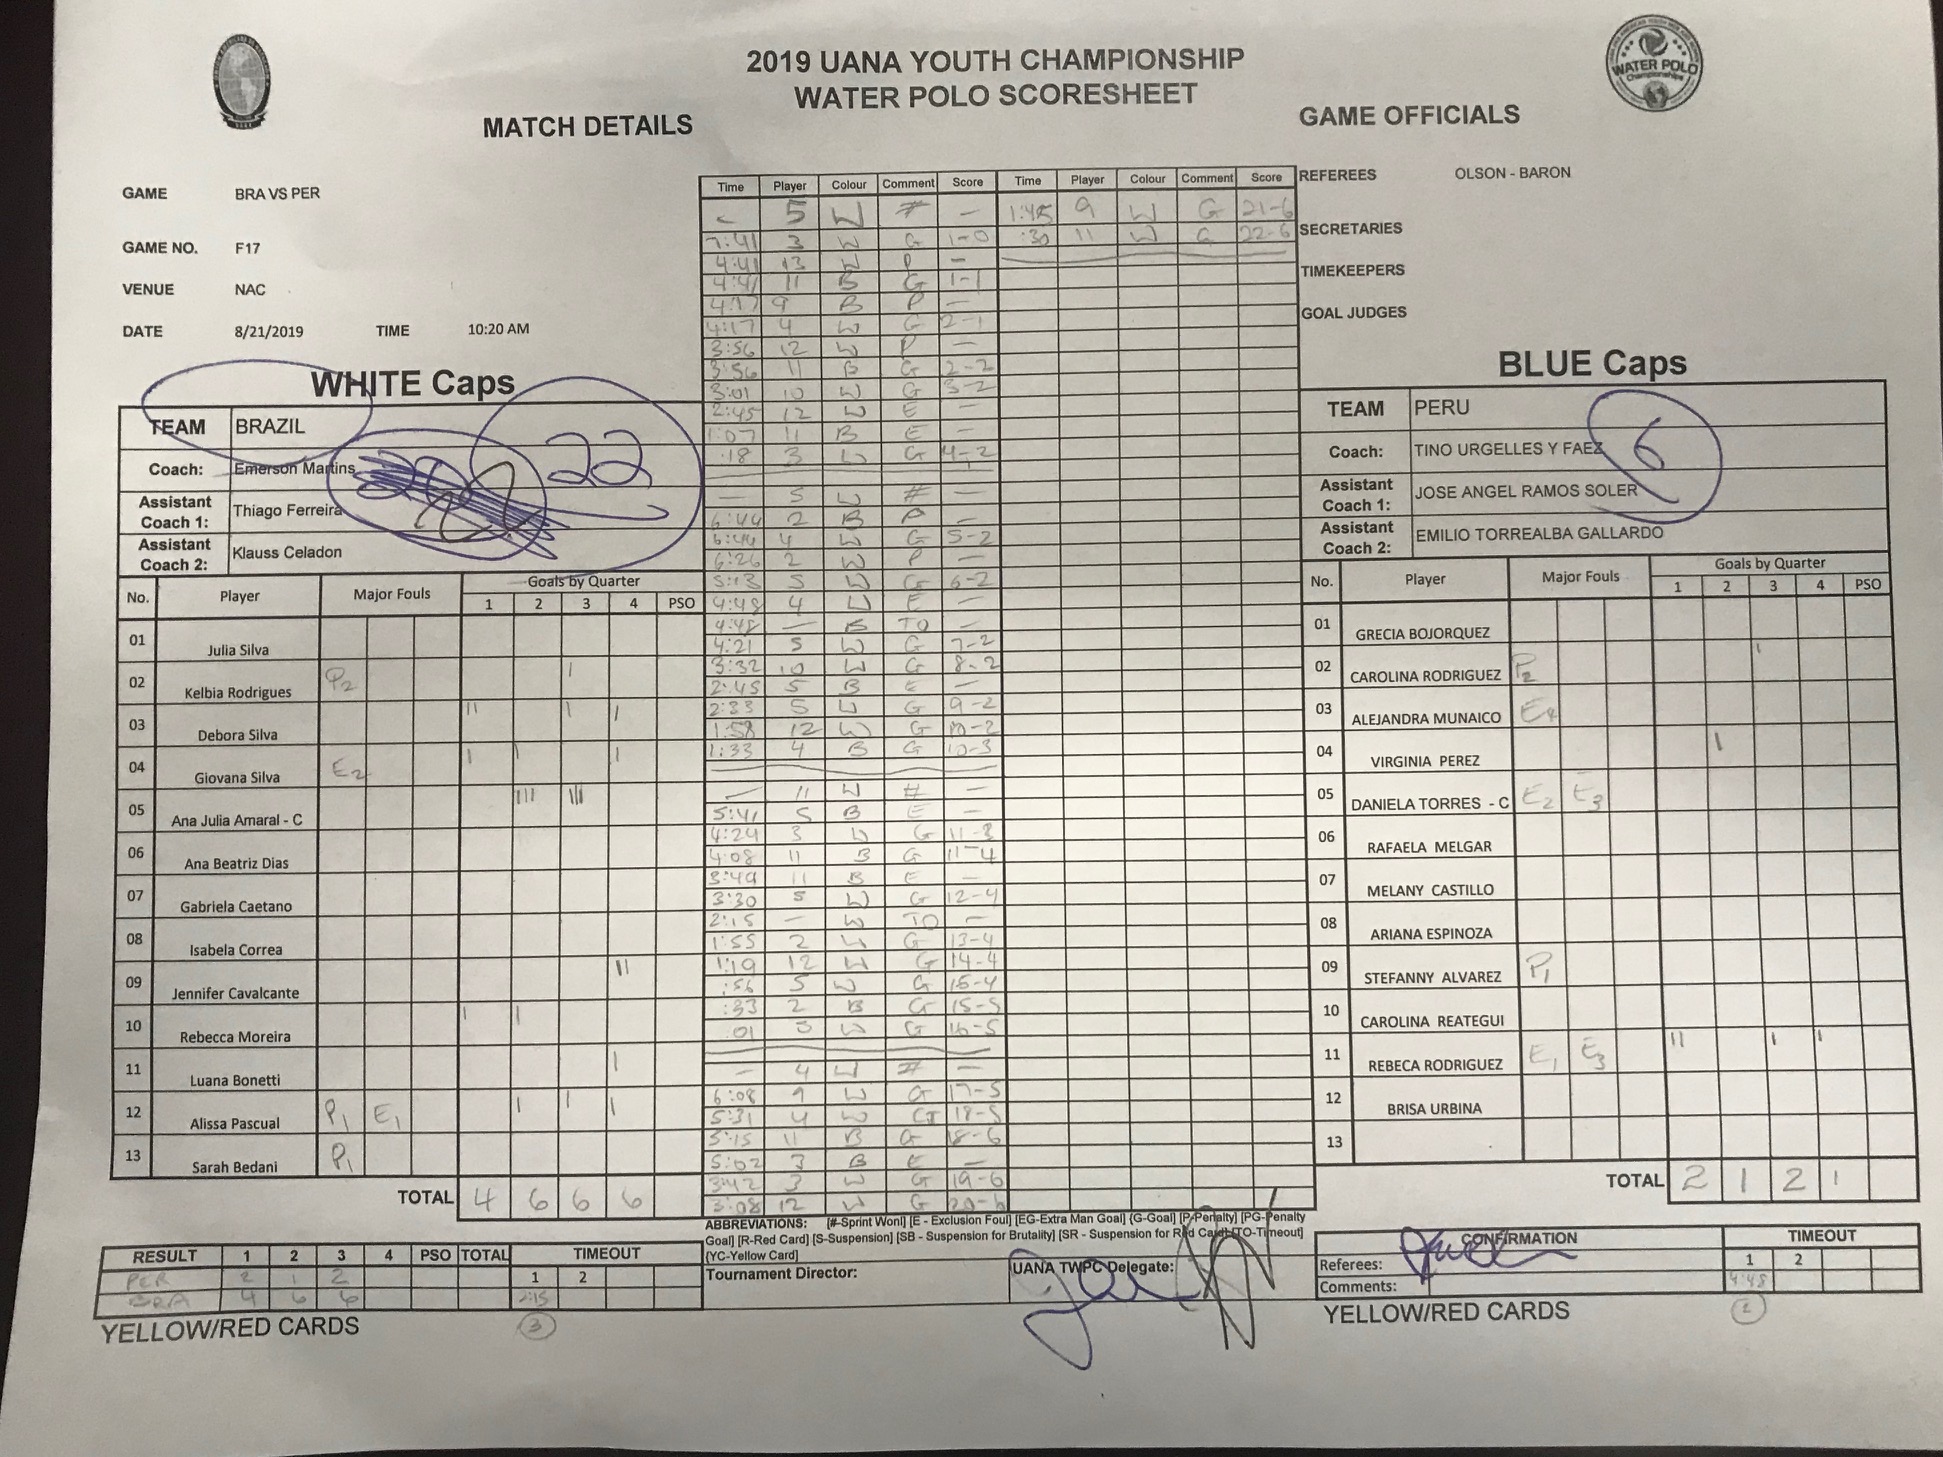 2019 UANA YOUTH CHAMPIONSHIP
WATER POLO SCORESHEET
WATER POLO
Championships
MATCH DETAILS
GAME OFFICIALS
GAME BRA VS PER
GAME NO. F17
VENUE NAC
DATE 8/21/2019 TIME 10:20 AM
REFEREES OLSON - BARON
SECRETARIES
TIMEKEEPERS
GOAL JUDGES
WHITE Caps
TEAM BRAZIL
22
Coach: Emerson Martins
Assistant Coach 1: Thiago Ferreira
Assistant Coach 2: Klauss Celadon
No. Player Major Fouls Goals by Quarter
1 2 3 4 PSO
01 Julia Silva
02 Kelbia Rodrigues P2 |
03 Debora Silva || | |
04 Giovana Silva E2 | | |
05 Ana Julia Amaral - C ||| |||
06 Ana Beatriz Dias
07 Gabriela Caetano
08 Isabela Correa
09 Jennifer Cavalcante ||
10 Rebecca Moreira | |
11 Luana Bonetti |
12 Alissa Pascual P1 E1 | | |
13 Sarah Bedani P1
TOTAL 4 6 6 6
RESULT 1 2 3 4 PSO TOTAL TIMEOUT
PER 2 1 2 1 2
BRA 4 6 6 2:15
YELLOW/RED CARDS 3
Time Player Colour Comment Score
5 W # —
7:41 3 W G 1-0
4:41 13 W P —
4:41 11 B G 1-1
4:17 9 B P —
4:17 4 W G 2-1
3:56 12 W P —
3:56 11 B G 2-2
3:01 10 W G 3-2
2:45 12 W E —
1:07 11 B E —
:18 3 W G 4-2
— 5 W # —
6:44 2 B P —
6:44 4 W G 5-2
6:26 2 W P —
5:13 5 W G 6-2
4:48 4 W E —
4:48 — B TO —
4:21 5 W G 7-2
3:32 10 W G 8-2
2:45 5 B E —
2:33 5 W G 9-2
1:58 12 W G 10-2
1:33 4 B G 10-3
— 11 W # —
5:41 5 B E —
4:24 3 W G 11-3
4:08 11 B G 11-4
3:49 11 B E —
3:30 5 W G 12-4
2:15 — W TO —
1:55 2 W G 13-4
1:19 12 W G 14-4
:56 5 W G 15-4
:33 2 B G 15-5
:01 5 W G 16-5
— 4 W # —
6:08 9 W G 17-5
5:31 4 W G 18-5
5:15 11 B G 18-6
5:02 3 B E —
3:42 3 W G 19-6
3:08 12 W G 20-6
Time Player Colour Comment Score
1:45 9 W G 21-6
:30 11 W G 22-6
ABBREVIATIONS: [#-Sprint Won] [E - Exclusion Foul] [EG-Extra Man Goal] [G-Goal] [P-Penalty] [PG-Penalty
Goal] [R-Red Card] [S-Suspension] [SB - Suspension for Brutality] [SR - Suspension for Red Card] [TO-Timeout]
[YC-Yellow Card]
Tournament Director:
UANA TWPC Delegate:
BLUE Caps
TEAM PERU
6
Coach: TINO URGELLES Y FAEZ
Assistant Coach 1: JOSE ANGEL RAMOS SOLER
Assistant Coach 2: EMILIO TORREALBA GALLARDO
No. Player Major Fouls Goals by Quarter
1 2 3 4 PSO
01 GRECIA BOJORQUEZ
02 CAROLINA RODRIGUEZ P2 |
03 ALEJANDRA MUNAICO E4
04 VIRGINIA PEREZ |
05 DANIELA TORRES - C E2 E3
06 RAFAELA MELGAR
07 MELANY CASTILLO
08 ARIANA ESPINOZA
09 STEFANNY ALVAREZ P1
10 CAROLINA REATEGUI
11 REBECA RODRIGUEZ E1 E3 || | |
12 BRISA URBINA
13
TOTAL 2 1 2 1
CONFIRMATION TIMEOUT
Referees: 1 2
Comments: 4:48
YELLOW/RED CARDS 2